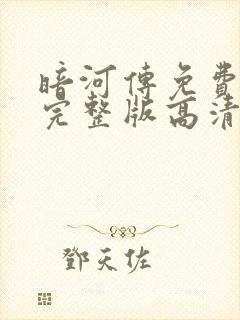 暗河傳免費
完整版高清
鄧天佐